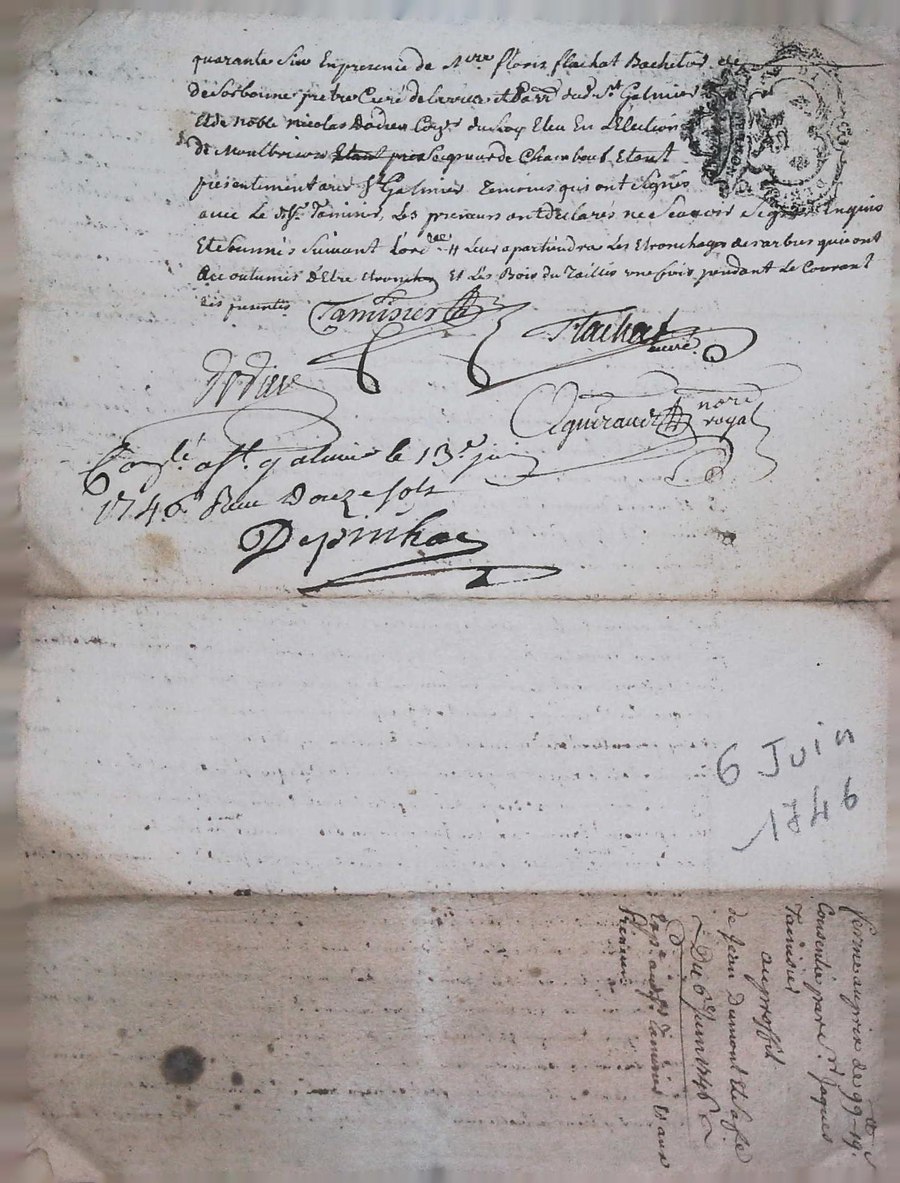 quarante Six En presence de Mre floris flachat Bachelier
de Sorbonne pretre Curé de St Galmier
Et de noble nicolas Dodieu Conr du Roy Eleu En L'Election
de Montbrison Etant pres Seigneur de Chambout Etant
presentement aud St Galmier Temoins qui ont Signés
avec Le dsr Tamisier, Les preneurs ont declarés ne Scavoir Signer Enquis
Et Sommés Suivant L'ordce Leur apartiendra Les Etronchages des arbres qui ont
Accoutumés D'Etre Etronchés Et Les Bois du Taillis une fois pendant Le Courant
des presentes
Tamisier
Flachat
curé
Dodieu
guéraud nore
royal
Conlé a st galmier le 13e juin
1746 Reçu Douze sols
Deprinhac
6 Juin
1746
ferme au prix de 99 lt 19s
Consentie par sr Jaques
Tamisier
au proffit
de Jean Dumont et sa fe
Du 6e Juin 1746
Expe aud sr Tamisier Et aux
Preneurs